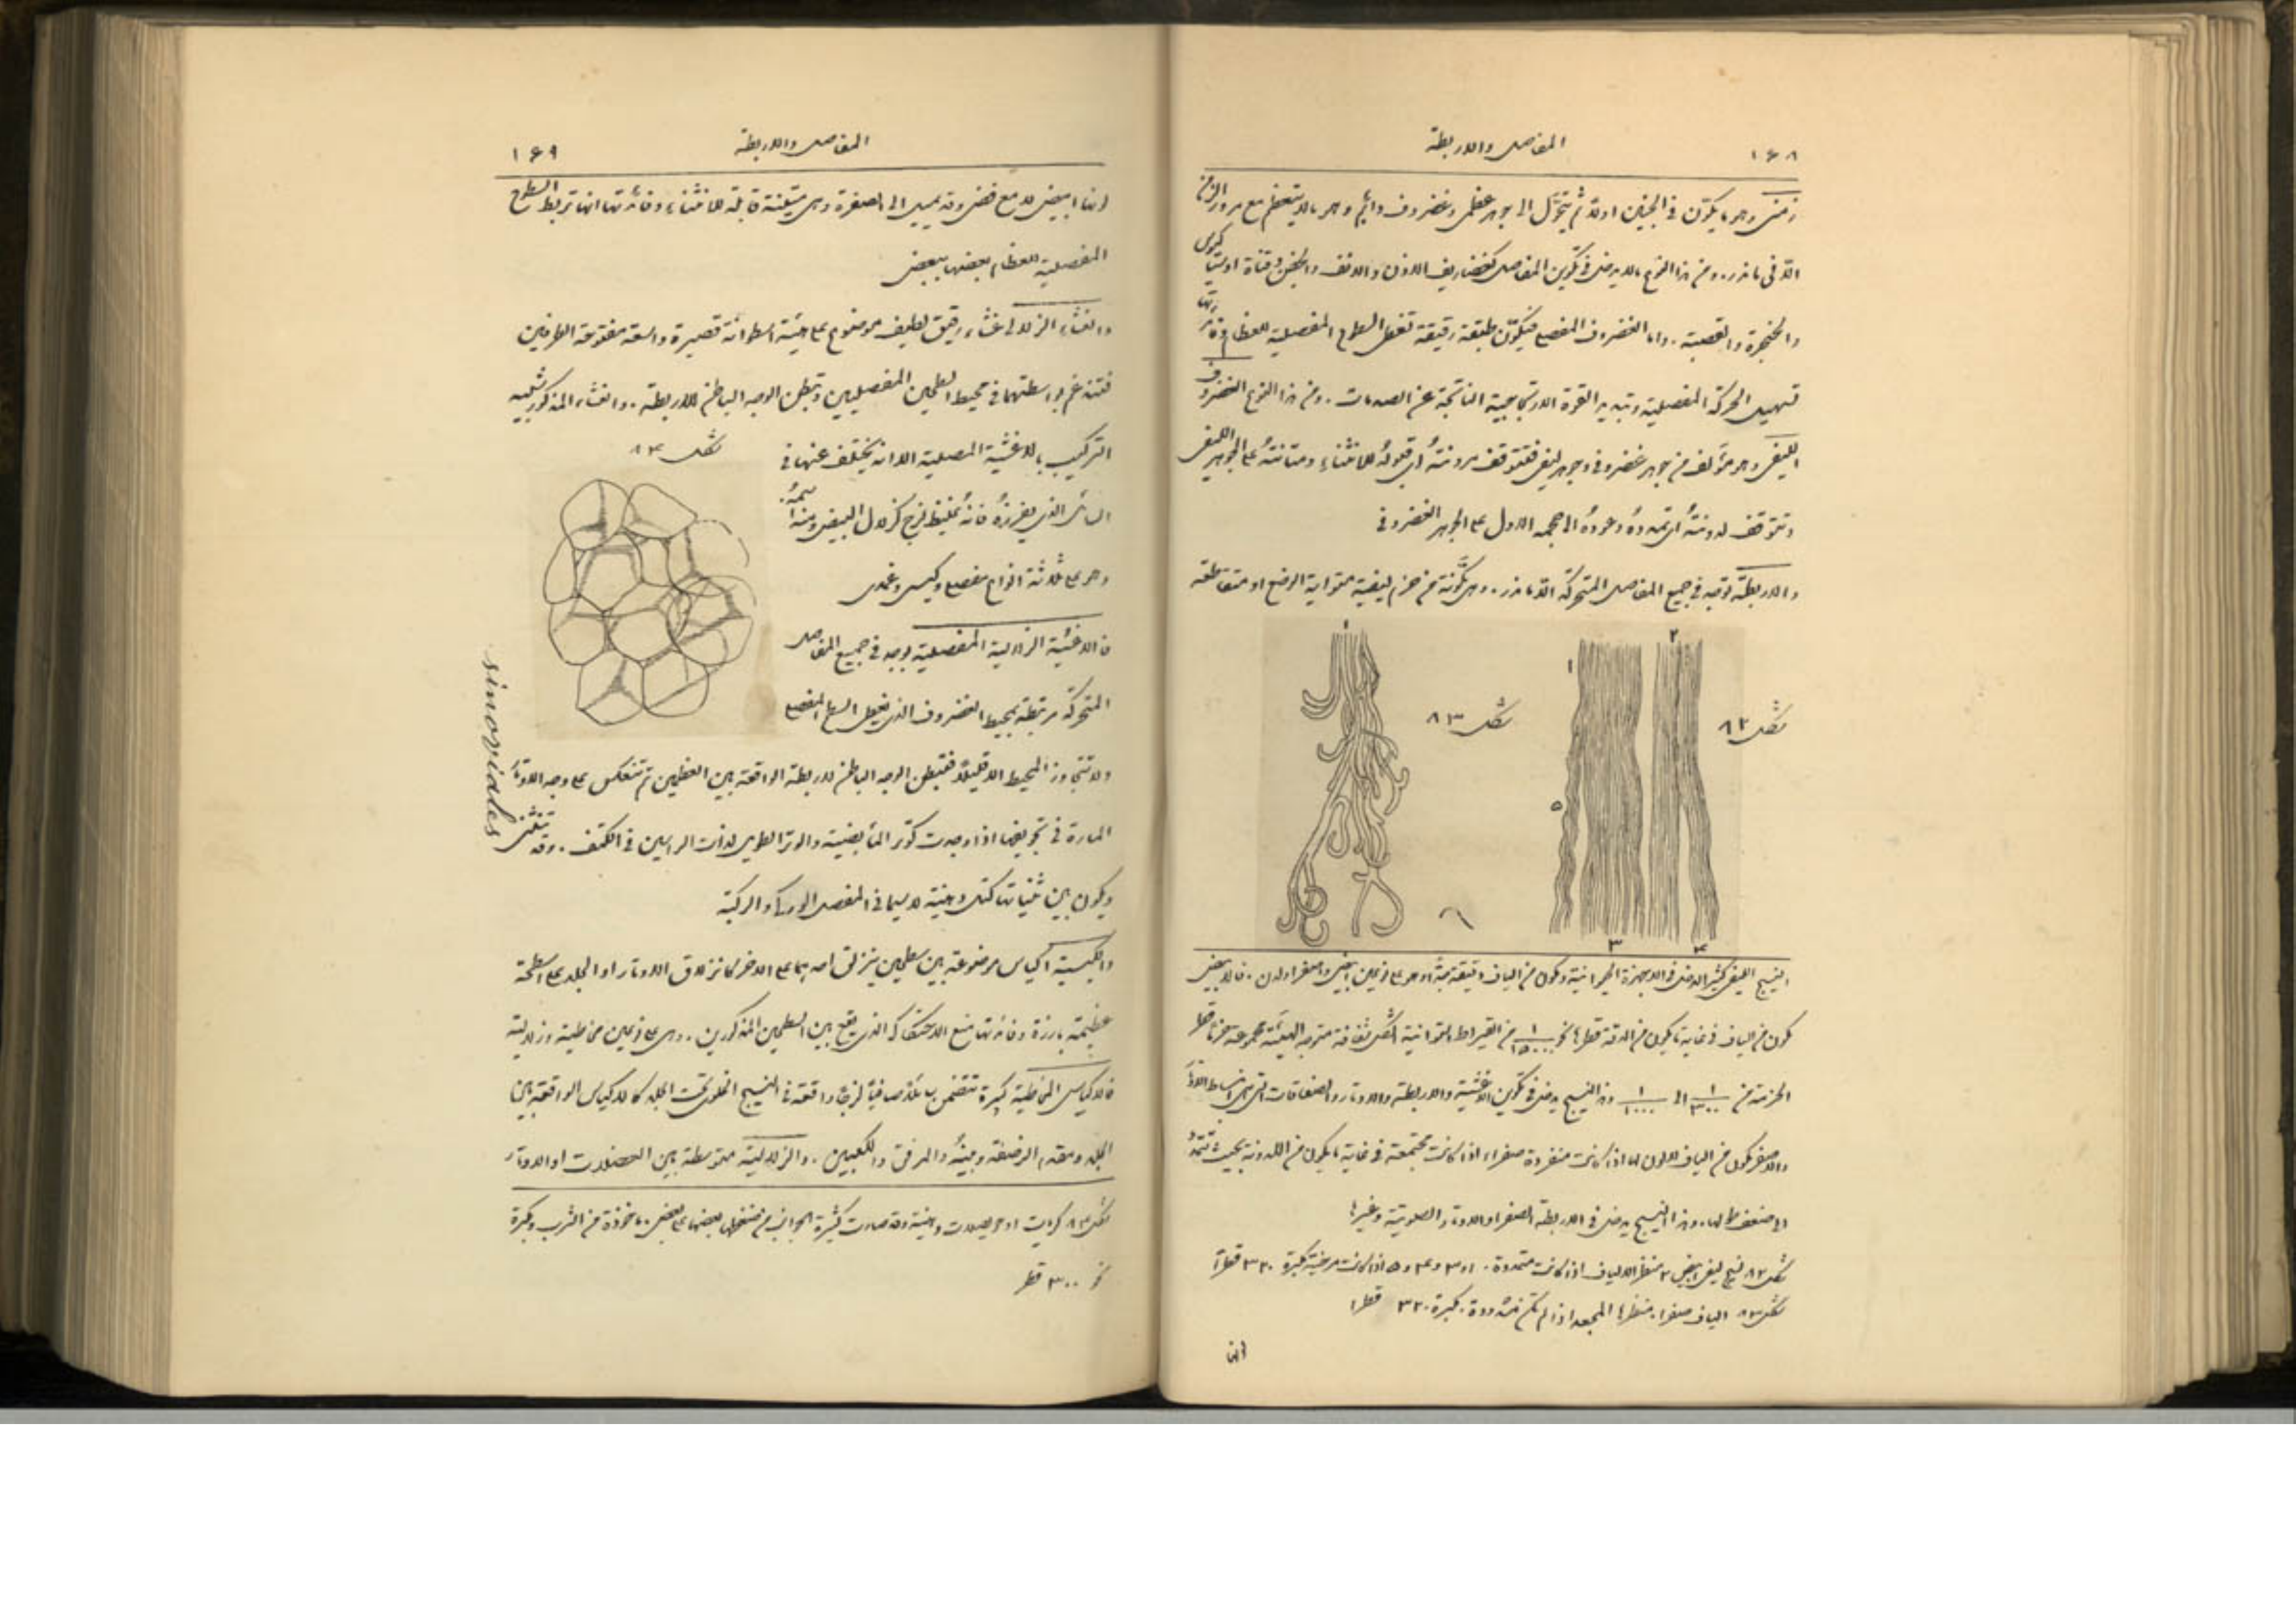 ١٦٨ المفاصل والاربطة
زمني وهو ما يكوّن في الجنين اولاً ثم يتحوّل الى جوهر عظمي وغضروف دائم وهو ما لا يتعظم مع مرور الزمن
الّا في ما ندر. ومن هذا النوع ما لا يدخل في تكوين المفاصل كغضاريف الاذن والانف والجفن وقناة اوستاكيوس
والحنجرة والقصبة. واما الغضروف المفصلي فيكوّن طبقة رقيقة تغطي السطوح المفصلية للعظام وفائدتها
تسهيل الحركة المفصلية وتبديد القوة الارتجاجية الناتجة عن الصدمات. ومن هذا النوع الغضروف
الليفي وهو مؤلف من جوهر غضروفي وجوهر ليفي فتتوقف مرونتهُ اي قبولهُ للانثناء ومتانتهُ على الجوهر الليفي
وتتوقف لدونتهُ اي تمددهُ وعودهُ الى حجمه الاول على الجوهر الغضروفي
والاربطة توجد في جميع المفاصل المتحركة الّا ما ندر. وهي مكوّنة من حزم ليفية متوازية الوضع او متقاطعة
١
١
٢
شكل ٨٢
شكل ٨٣
٥
٣ ٤
النسيج الليفي كثير الدخول في الاجهزة الحيوانية ومكوّن من الياف دقيقة جدًّا وهو على نوعين ابيض واصفر اللون. فالابيض
مكوّن من الياف في غاية ما يكون من الدقة قطرها نحو ١/١٥٠٠٠ من القيراط متوازية الشكل شفافة متموجة الهيئة مجموعة حزماً قطر
الحزمة من ١/٣٠٠٠ الى ١/١٠٠٠ وهذا النسيج يدخل في تكوين الاغشية والاربطة والاوتار والصفاقات التي هي انبساط الاوتار
والاصفر مكوّن من الياف لا لون لها اذا كانت منفردة صفراء اذا كانت مجتمعة في غاية ما يكون من اللدونة بحيث تتمدد
الى ضعف طولها. وهذا النسيج يدخل في الاربطة الصفراء والاوتار الصوتية وغيرها
شكل ٨٢ نسيج ليفي ابيض ٢ منظر الالياف اذا كانت متمددة. ١ و٣ و٤ و٥ اذا كانت مرخية مكبرة ٣٢٠ قطرًا
شكل ٨٣ الياف صفراء منظرها المجعد اذا لم تكن مشدودة. مكبرة ٣٢٠ قطرا
انها
المفاصل والاربطة ١٦٩
انها ابيض لامع فضي وقد يميل الى الصفرة وهي متينة قابلة للانثناء وفائدتها انها تربط السطوح
المفصلية للعظام بعضها ببعض
والغشاء الزلالي غشاء رقيق لطيف موضوع على هيئة اسطوانة قصيرة واسعة مفتوحة الطرفين
فتندغم بواسطتهما في محيط السطحين المفصليين وتبطن الوجه الباطن للاربطة. والغشاء المذكور شبيه
التركيب بالاغشية المصلية الا انه يختلف عنها في شكل ٨٤
السائل الذي يفرزهُ فانهُ غليظ لزج كزلال البيض ومنه اسمهُ.
وهو على ثلاثة انواع مفصلي وكيسي وغمدي
فالاغشية الزلالية المفصلية توجد في جميع المفاصل
المتحركة مرتبطة بمحيط الغضروف الذي يغطي السطح المفصلي
sinoviales
ولا تتجاوز المحيط الا قليلاً فتبطن الوجه الباطن للاربطة الواقعة بين العظمين ثم تنعكس على وجه الاوتار
المارة في تجويفها اذا وجدت كوتر المأبضية والوتر الطويل لذات الراسين في الكتف. وقد تنثني
ويكون بين ثنياتها كتل دهنية لا سيما في المفصل الوركي والركبة
والكيسية اكياس موضوعة بين سطحين ينزلق احدهما على الآخر كانزلاق الاوتار او الجلد على اسطحة
عظيمة بارزة وفائدتها منع الاحتكاك الذي يقع بين السطحين المذكورين. وهي على نوعين مخاطية وزلالية
فالاكياس المخاطية كبيرة تتضمن سائلاً صافياً لزجاً واقعة في النسيج الخلوي تحت الجلد كالاكياس الواقعة بين
الجلد ومقدم الرضفة وبينهُ والمرفق والكعبين. والزلالية متوسطة بين العضلات او الاوتار
شكل ٨٤ كريات او حويصلات دهنية وقد صارت كثيرة الجوانب من ضغطها بعضها على بعض. ماخوذة من الثرب ومكبرة
نحو ٣٠٠ قطر